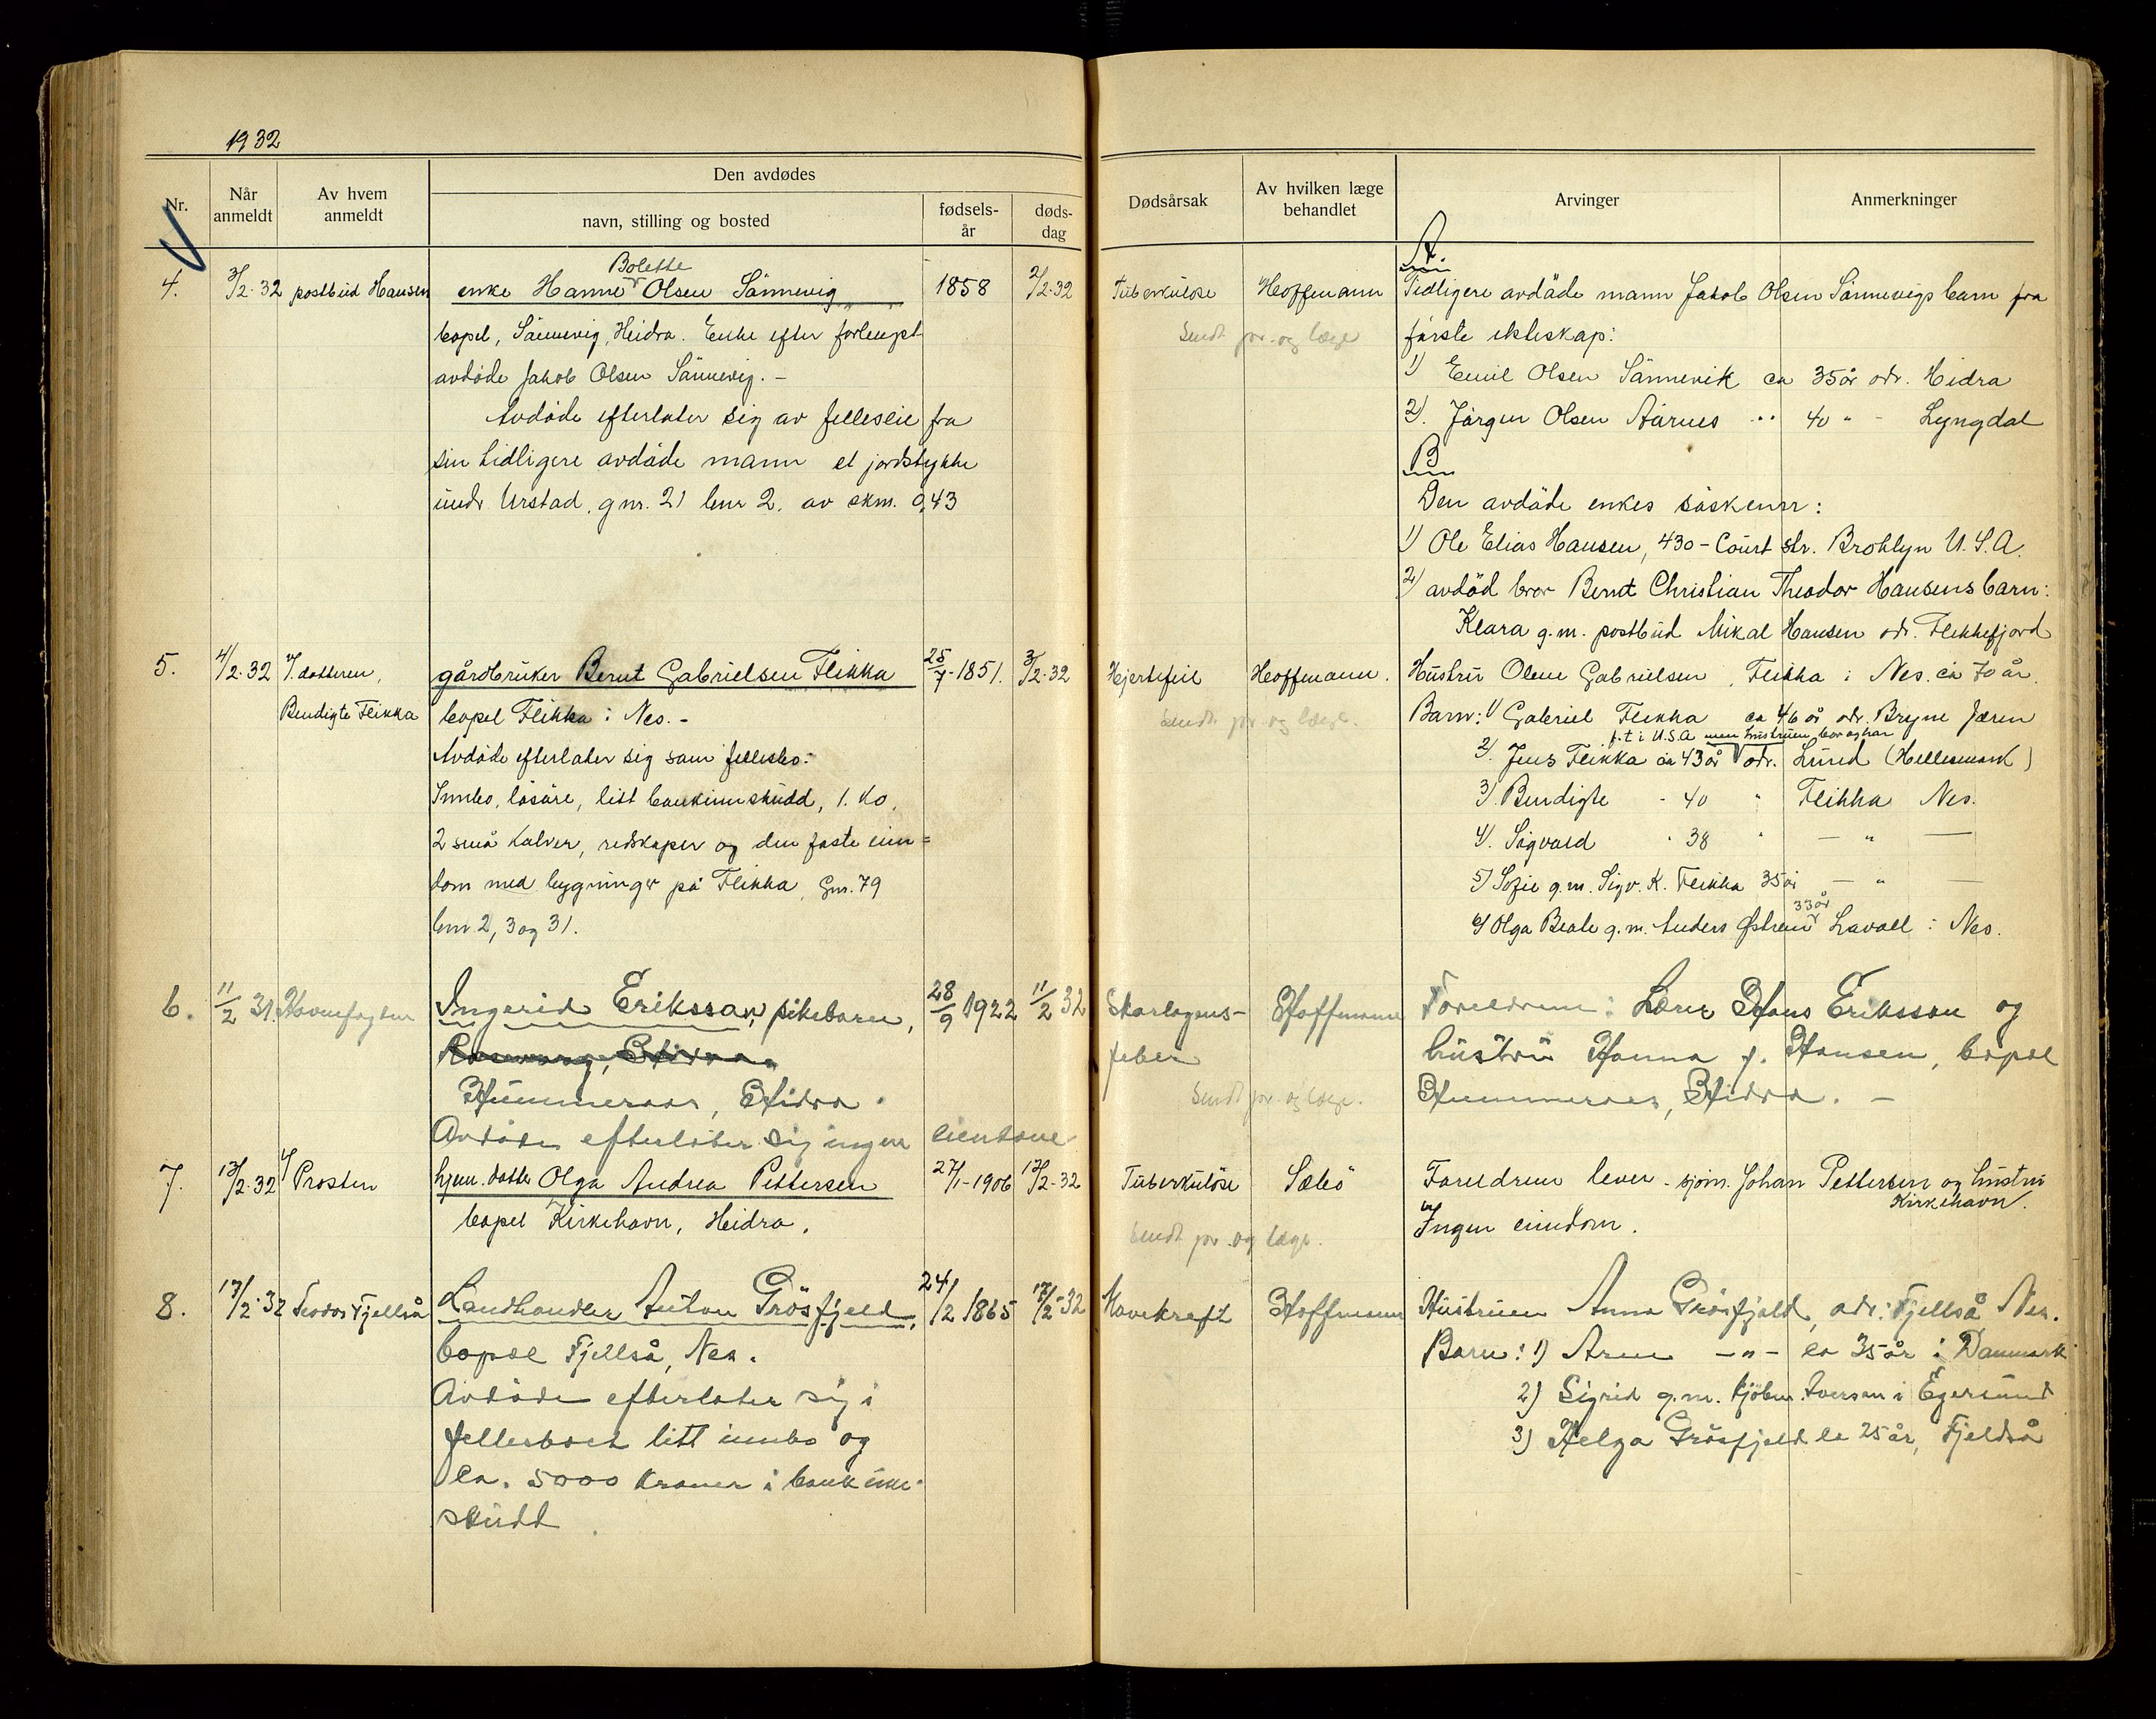 1932
Nr.
Når anmeldt
Av hvem anmeldt
Den avdødes
navn, stilling og bosted
fødsels-år
døds-dag
Dødsårsak
Av hvilken læge behandlet
Arvinger
Anmerkninger
4. 3/2-32 postbud Hansen
Bolette
enke Hanne Olsen Sännevig
1858 2/2-32 Tuberkulose Hoffmann
bopel, Sännevig, Heidra. Enke efter forlengst
avdøde Jakob Olsen Sännevig. -
Avdøde efterlater sig av felleseie fra
sin tidligere avdøde mann et jordstykke
undr Urstad, gnr. 21 bnr 2. av skm. 0,43
Sendt pr. og læge
A.
Tidligere avdøde mann Jakob Olsen Sännevigs barn fra
første ekteskap:
1) Emil Olsen Sännevik ca 35 år adr. Hidra
2). Jörgen Olsen Aärnes 40 " - Lyngdal
B
Den avdøde enkes søskenn:
1) Ole Elias Hansen, 430 - Court str. Broklyn U.S.A.
2) avdöd bror Bernt Christian Theodor Hansens barn:
Klara g.m. postbud Mikal Hansen adr. Flekkefjord
5. 4/2-32 v/ datteren,
Bendigte Flikka
gårdbruker Bernt Gabrielsen Flikka
25/7-1851. 3/2-32 Hjertefeil Hoffmann.
bopel Flikka i Nes. -
Avdøde efterlater sig som fellesbo:
Innbo, løsøre, litt bankinnskudd, 1. ko,
2 små kalver, redskaper og den faste eien=
dom med bygninger på Flikka, Gnr. 79
bnr 2, 3 og 31.
Sendt pr. og læge.
Hustru Olene Gabrielsen, Flikka i Nes. ca 70 år.
Barn: 1) Gabriel Flikka ca 46 år adr. Bryne Jæren
f.t i U.S.A men hustruen bor og har
2). Jens Flikka ca 43 år adr. Lund (Hellesmark)
3). Bendigte - 40 " Flikka Nes.
4). Sigvald " 38 " — " —
5) Sofie g.m. Sigv. K. Flikka 35 år — " —
33 år
6) Olga Beate g.m. Anders Østrem Lavoll i Nes.
6. 11/2 31. Havnefogden
Ingerid Eriksson, pikebarn,
28/9 1922 11/2 32 Skarlagens-
feber
Hoffmann
Hummeraas, Hidra.
Avdøde efterlater sig ingen eiendom
Sendt pr. og læge.
Foreldrene: Lærer Hans Eriksson og
hustru Hanna f. Hansen, bopel
Hummeraas, Hidra. -
7. 13/2-32 v/ Prosten
hjem. datter Olga Andrea Pettersen
27/1-1906 12/2-32 Tuberkulöse Sæbö
bopel Kirkehavn, Heidra.
Sendt pr. og læge.
Foreldrene lever - sjöm. Johan Pettersen og hustru
Kirkehavn.
Ingen eiendom.
8. 17/2-32 Teodor Fjellså
Landhandler Anton Grösfjeld,
24/2 1865 17/2-32 Mavekreft Hoffmann
bopel Fjellså, Nes.
Avdøde efterlater sig i
fellesboet litt innbo og
ca. 5000 kroner i bankinn-
skudd
Hustruen Anna Grösfjeld, adr: Fjellså Nes.
Barn: 1) Arne — " — ca 35 år i Danmark
2) Sigrid g.m. kjöbm. Iversen i Egersund
3) Helga Grösfjeld ca 25 år, Fjeldså